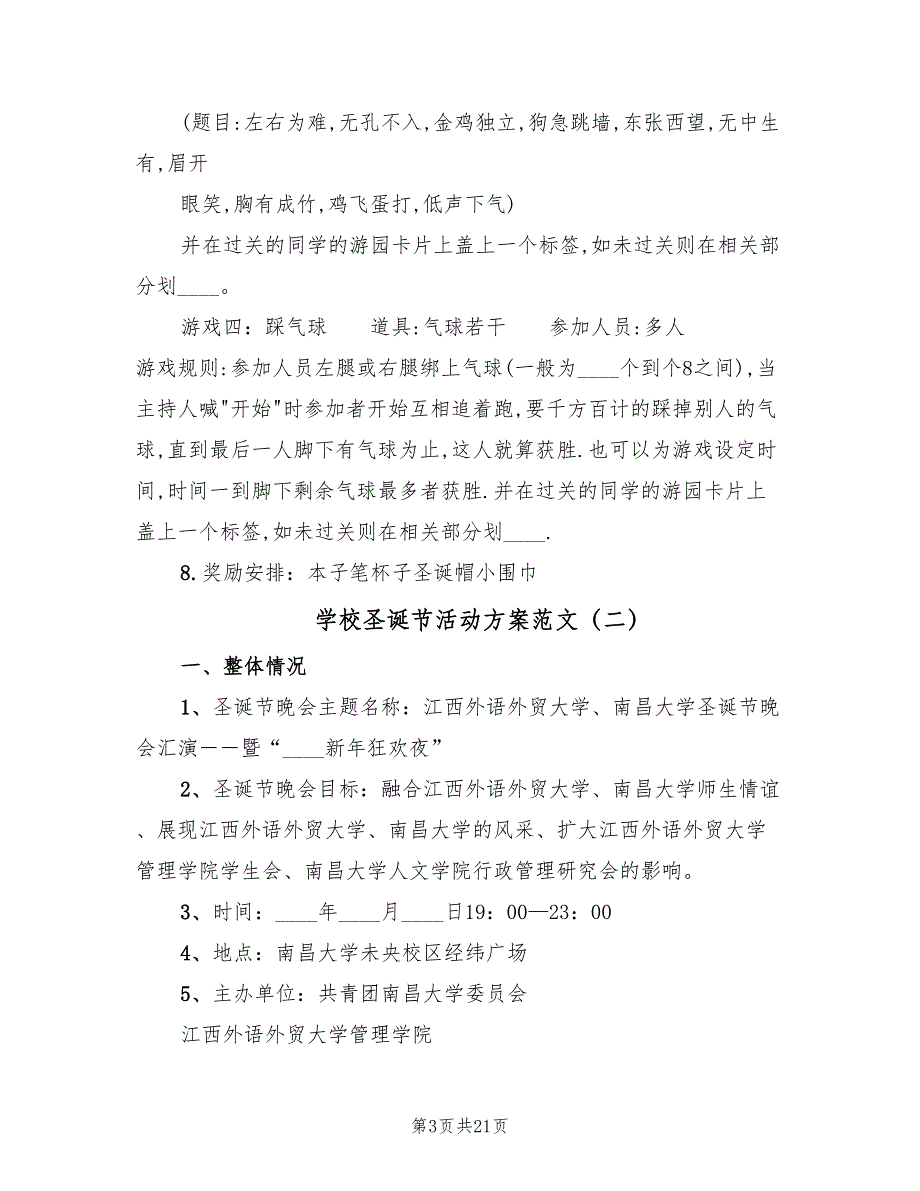 (题目:左右为难,无孔不入,金鸡独立,狗急跳墙,东张西望,无中生
有,眉开
眼笑,胸有成竹,鸡飞蛋打,低声下气)
并在过关的同学的游园卡片上盖上一个标签,如未过关则在相关部
分划____。
游戏四：踩气球 道具:气球若干 参加人员:多人
游戏规则:参加人员左腿或右腿绑上气球(一般为____个到个8之间),当
主持人喊"开始"时参加者开始互相追着跑,要千方百计的踩掉别人的气
球,直到最后一人脚下有气球为止,这人就算获胜.也可以为游戏设定时
间,时间一到脚下剩余气球最多者获胜.并在过关的同学的游园卡片上
盖上一个标签,如未过关则在相关部分划____.
8.奖励安排：本子笔杯子圣诞帽小围巾
学校圣诞节活动方案范文（二）
一、整体情况
1、圣诞节晚会主题名称：江西外语外贸大学、南昌大学圣诞节晚
会汇演——暨“____新年狂欢夜”
2、圣诞节晚会目标：融合江西外语外贸大学、南昌大学师生情谊
、展现江西外语外贸大学、南昌大学的风采、扩大江西外语外贸大学
管理学院学生会、南昌大学人文学院行政管理研究会的影响。
3、时间：____年____月____日19：00—23：00
4、地点：南昌大学未央校区经纬广场
5、主办单位：共青团南昌大学委员会
江西外语外贸大学管理学院
第3页共21页